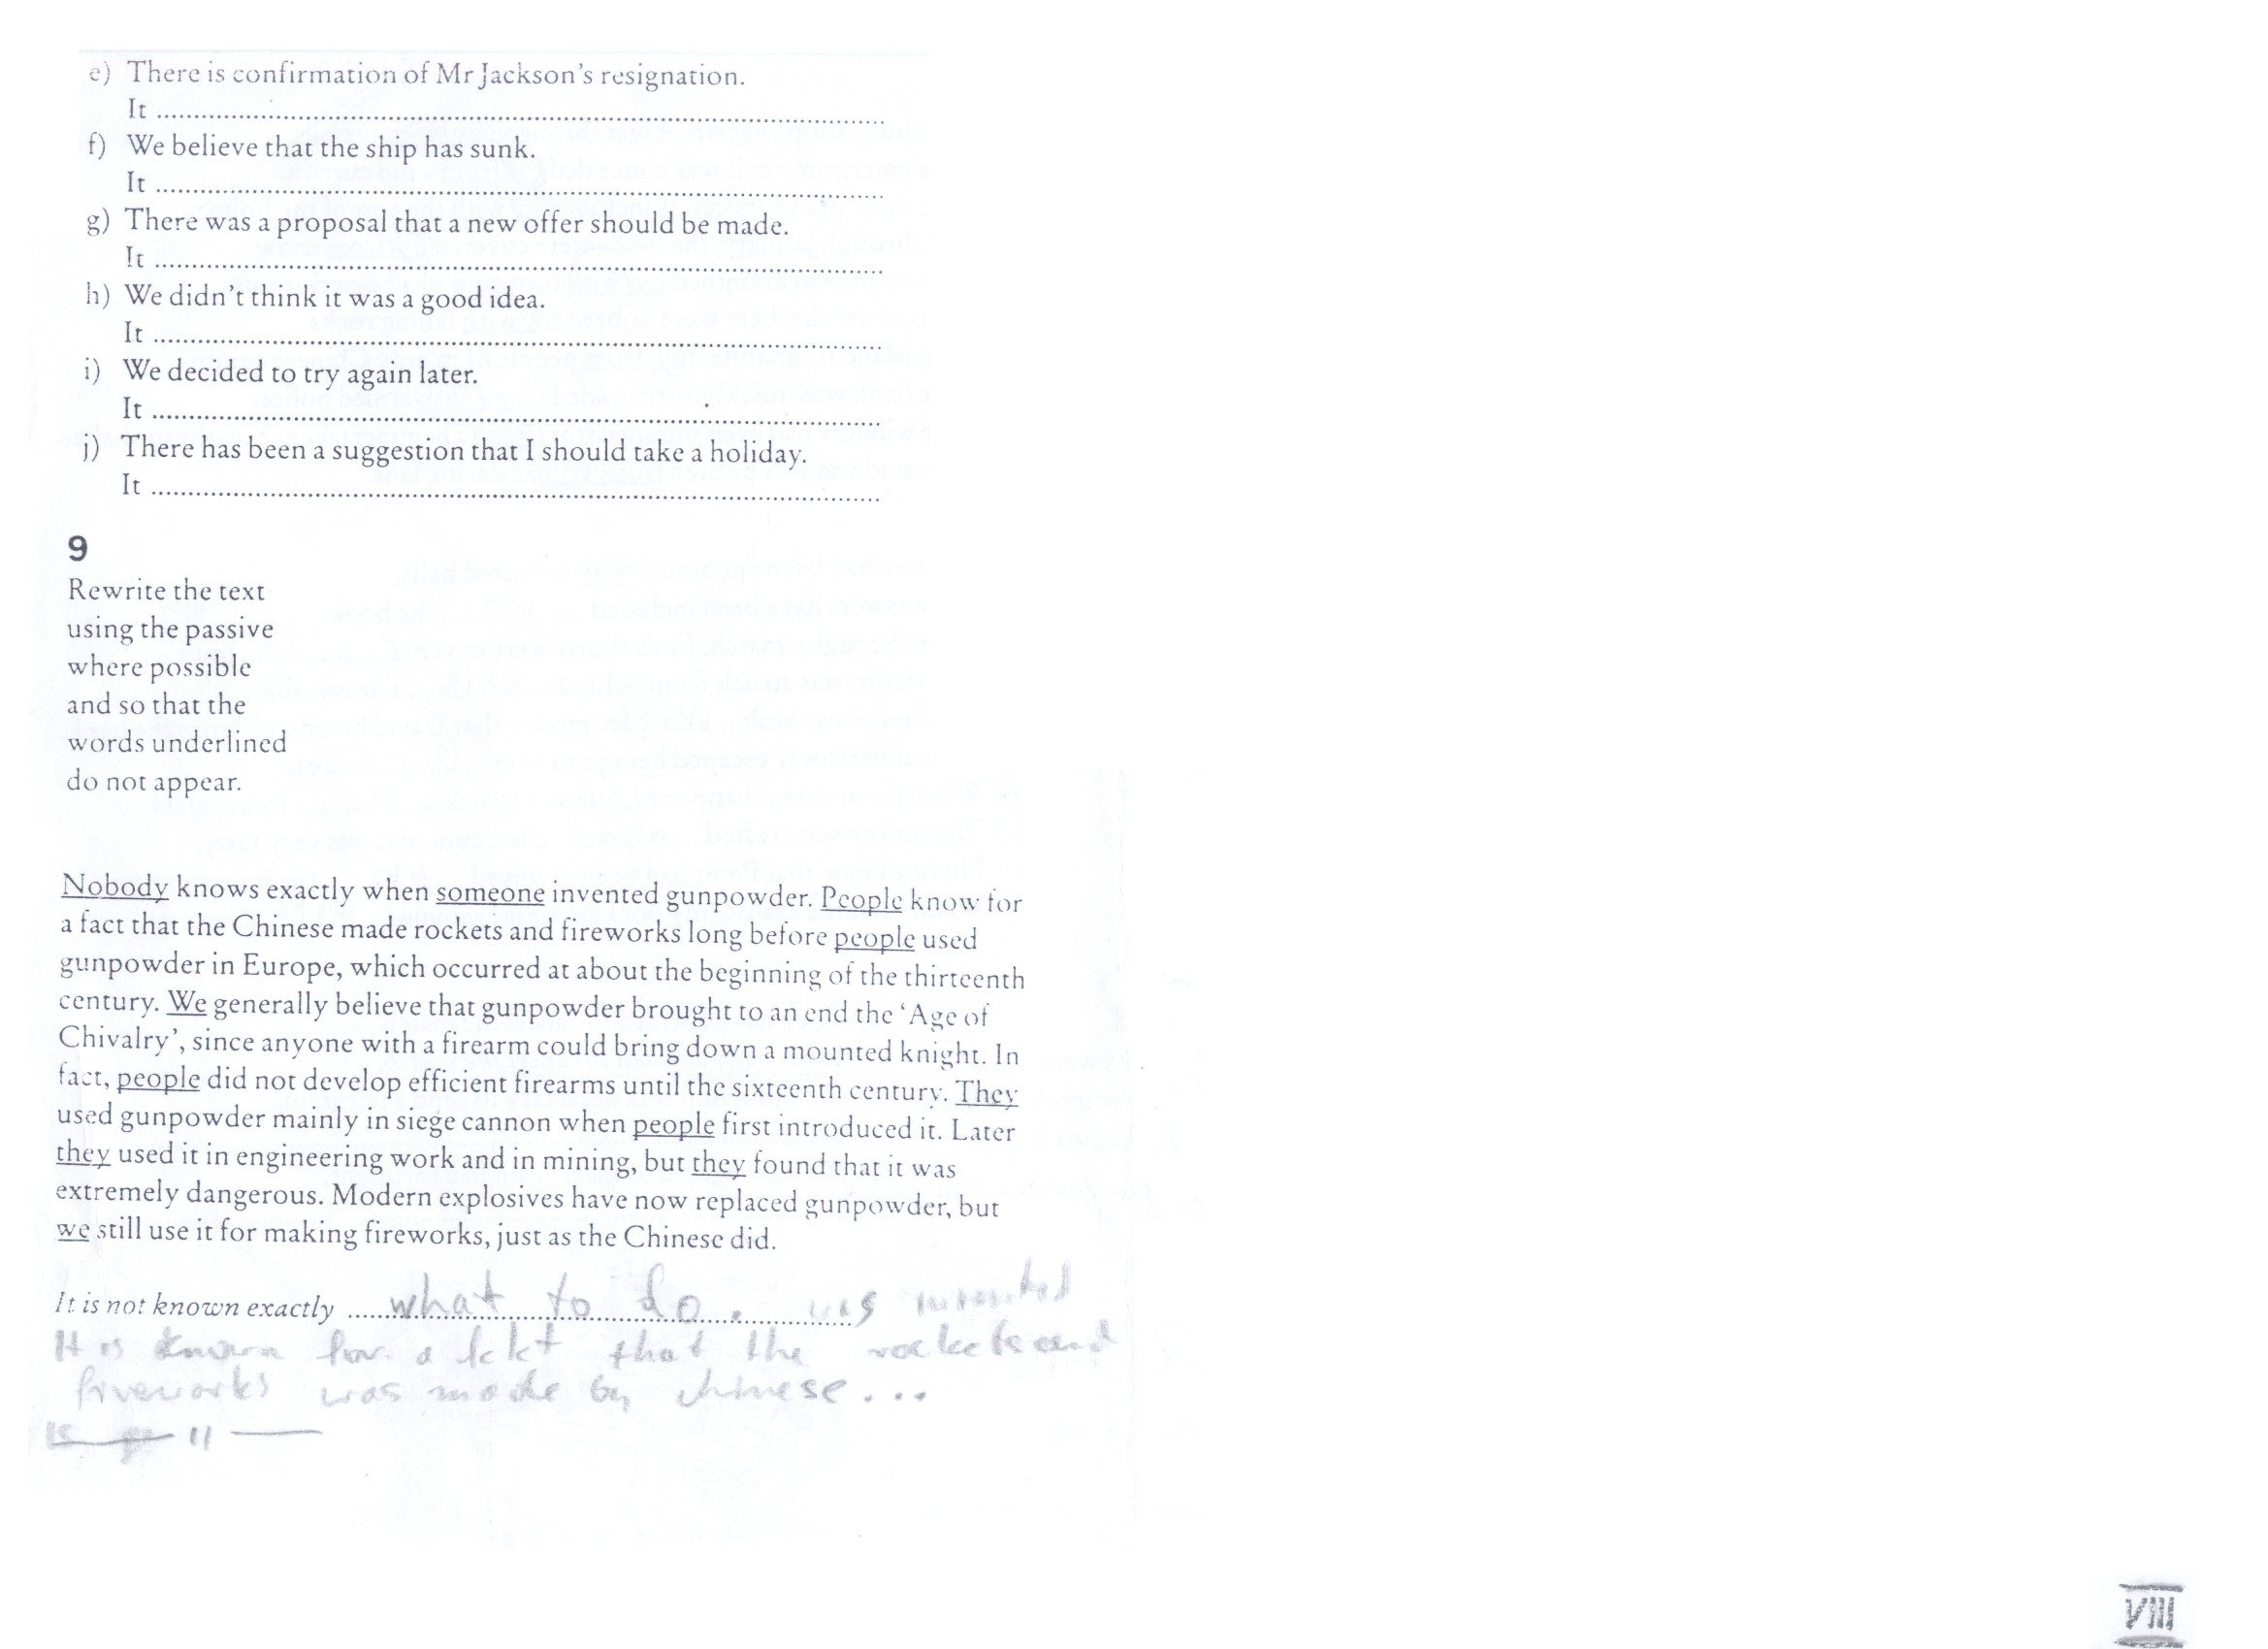 e) There is confirmation of Mr Jackson's resignation.
It ................................................
f) We believe that the ship has sunk.
It ................................................
g) There was a proposal that a new offer should be made.
It ................................................
h) We didn't think it was a good idea.
It ................................................
i) We decided to try again later.
It ................................................
j) There has been a suggestion that I should take a holiday.
It ................................................
9
Rewrite the text
using the passive
where possible
and so that the
words underlined
do not appear.
Nobody knows exactly when someone invented gunpowder. People know for
a fact that the Chinese made rockets and fireworks long before people used
gunpowder in Europe, which occurred at about the beginning of the thirteenth
century. We generally believe that gunpowder brought to an end the ‘Age of
Chivalry’, since anyone with a firearm could bring down a mounted knight. In
fact, people did not develop efficient firearms until the sixteenth century. They
used gunpowder mainly in siege cannon when people first introduced it. Later
they used it in engineering work and in mining, but they found that it was
extremely dangerous. Modern explosives have now replaced gunpowder, but
we still use it for making fireworks, just as the Chinese did.
It is not known exactly ..... what to do. was
It is known for a that the rockets and
fireworks was made by chinese...
VIII